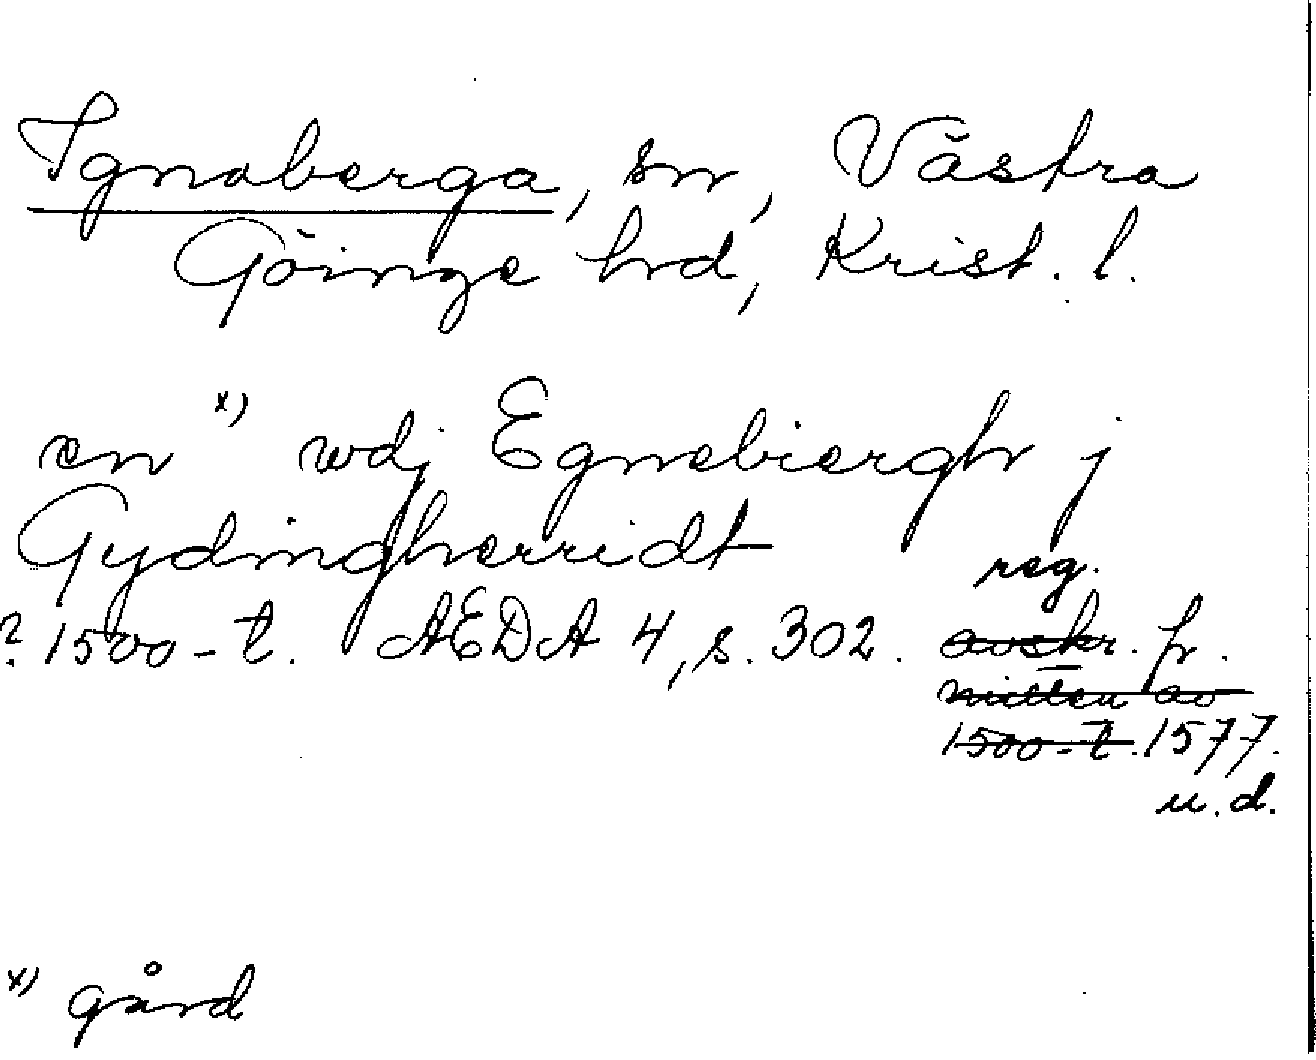 Ignaberga, sn, Västra
Göinge hrd, Krist. l.
en x) wdj Egnebiergh j
Gydingherridt
? 1500-t. AEDA 4, s. 302. reg.
avskr. fr.
mitten av
1500-t. 1577.
u.d.
x) gård